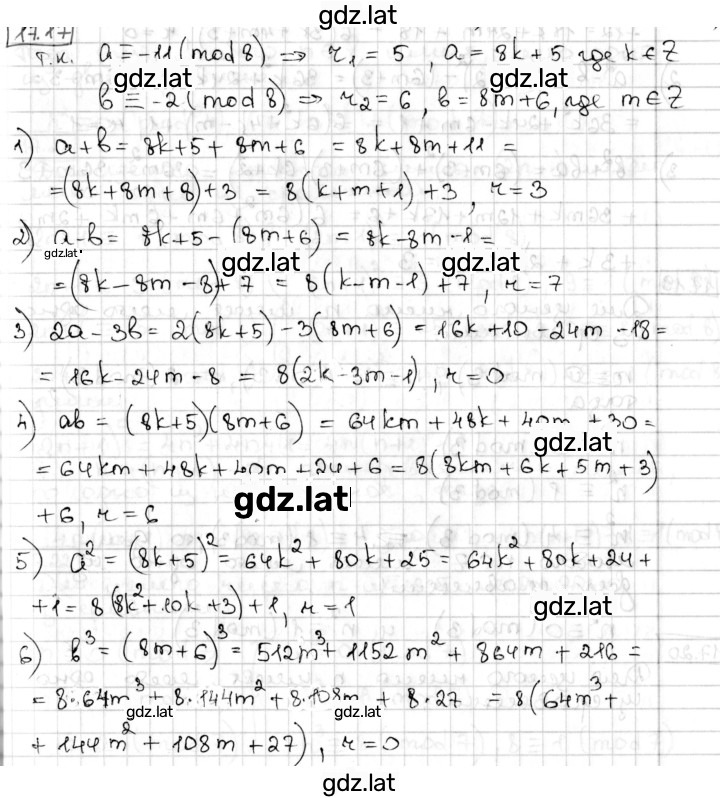 gdz.lat
17.17
т.к. a ≡ -11 (mod 8) ⇒ r₁ = 5 , a = 8k+5 где k ∈ Z
gdz.lat gdz.lat
b ≡ -2 (mod 8) ⇒ r₂ = 6 , b = 8m+6, где m ∈ Z
1) a+b = 8k+5 + 8m+6 = 8k+8m+11 =
= (8k+8m+8)+3 = 8(k+m+1)+3 , r = 3
2) a-b = 8k+5-(8m+6) = 8k-8m-1 =
gdz.lat gdz.lat gdz.lat
= (8k-8m-8)+7 = 8(k-m-1)+7 , r = 7
3) 2a-3b = 2(8k+5)-3(8m+6) = 16k+10-24m-18 =
= 16k-24m-8 = 8(2k-3m-1) , r = 0
4) ab = (8k+5)(8m+6) = 64km+48k+40m+30 =
gdz.lat
= 64km+48k+40m+24+6 = 8(8km+6k+5m+3)
gdz.lat
+6, r = 6
5) a² = (8k+5)² = 64k²+80k+25 = 64k²+80k+24+
+1 = 8(8k²+10k+3)+1, r = 1
gdz.lat
6) b³ = (8m+6)³ = 512m³+1152m²+864m+216 =
= 8·64m³+8·144m²+8·108m+8·27 = 8(64m³+
gdz.lat gdz.lat
+144m²+108m+27) , r = 0
gdz.lat